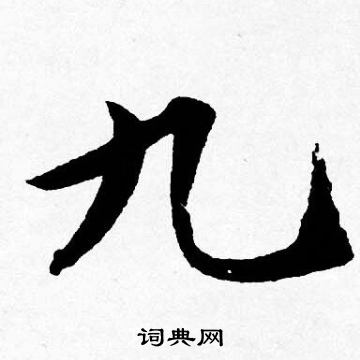 九
词典网